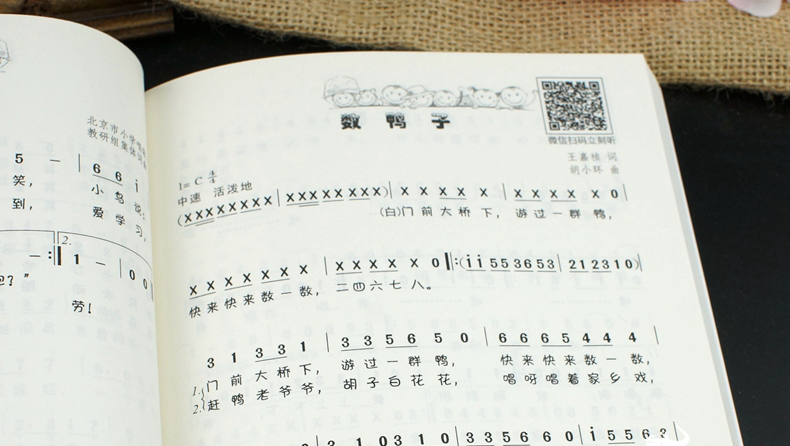 北京市小学
教研组集体
5 – | 6 6 i
笑， 小 鸟
到， 爱 学 习，
2.
– :‖ 1 – | 0 0
劳！
数 鸭 子
微信扫码立刻听
王嘉桢 词
胡小环 曲
1=C 4/4
中速 活泼地
(X X X X X X X X | X X X X X X X X) | X X X X X | X X X X X 0 |
(白)门 前 大 桥 下， 游 过 一 群 鸭，
X X X X X X X | X X X X X 0 ‖: (i i 5 5 3 6 5 3 | 2 1 2 3 1 0) |
快 来 快 来 数 一 数， 二 四 六 七 八。
3 1 3 3 1 | 3 3 5 6 5 0 | 6 6 6 5 4 4 4 |
1. 门 前 大 桥 下， 游 过 一 群 鸭， 快 来 快 来 数 一 数，
2. 赶 鸭 老 爷 爷， 胡 子 白 花 花， 唱 呀 唱 着 家 乡 戏，
3 1 0 3 1 0 | 3 3 5 6 6 0 | i 5 5 6 3